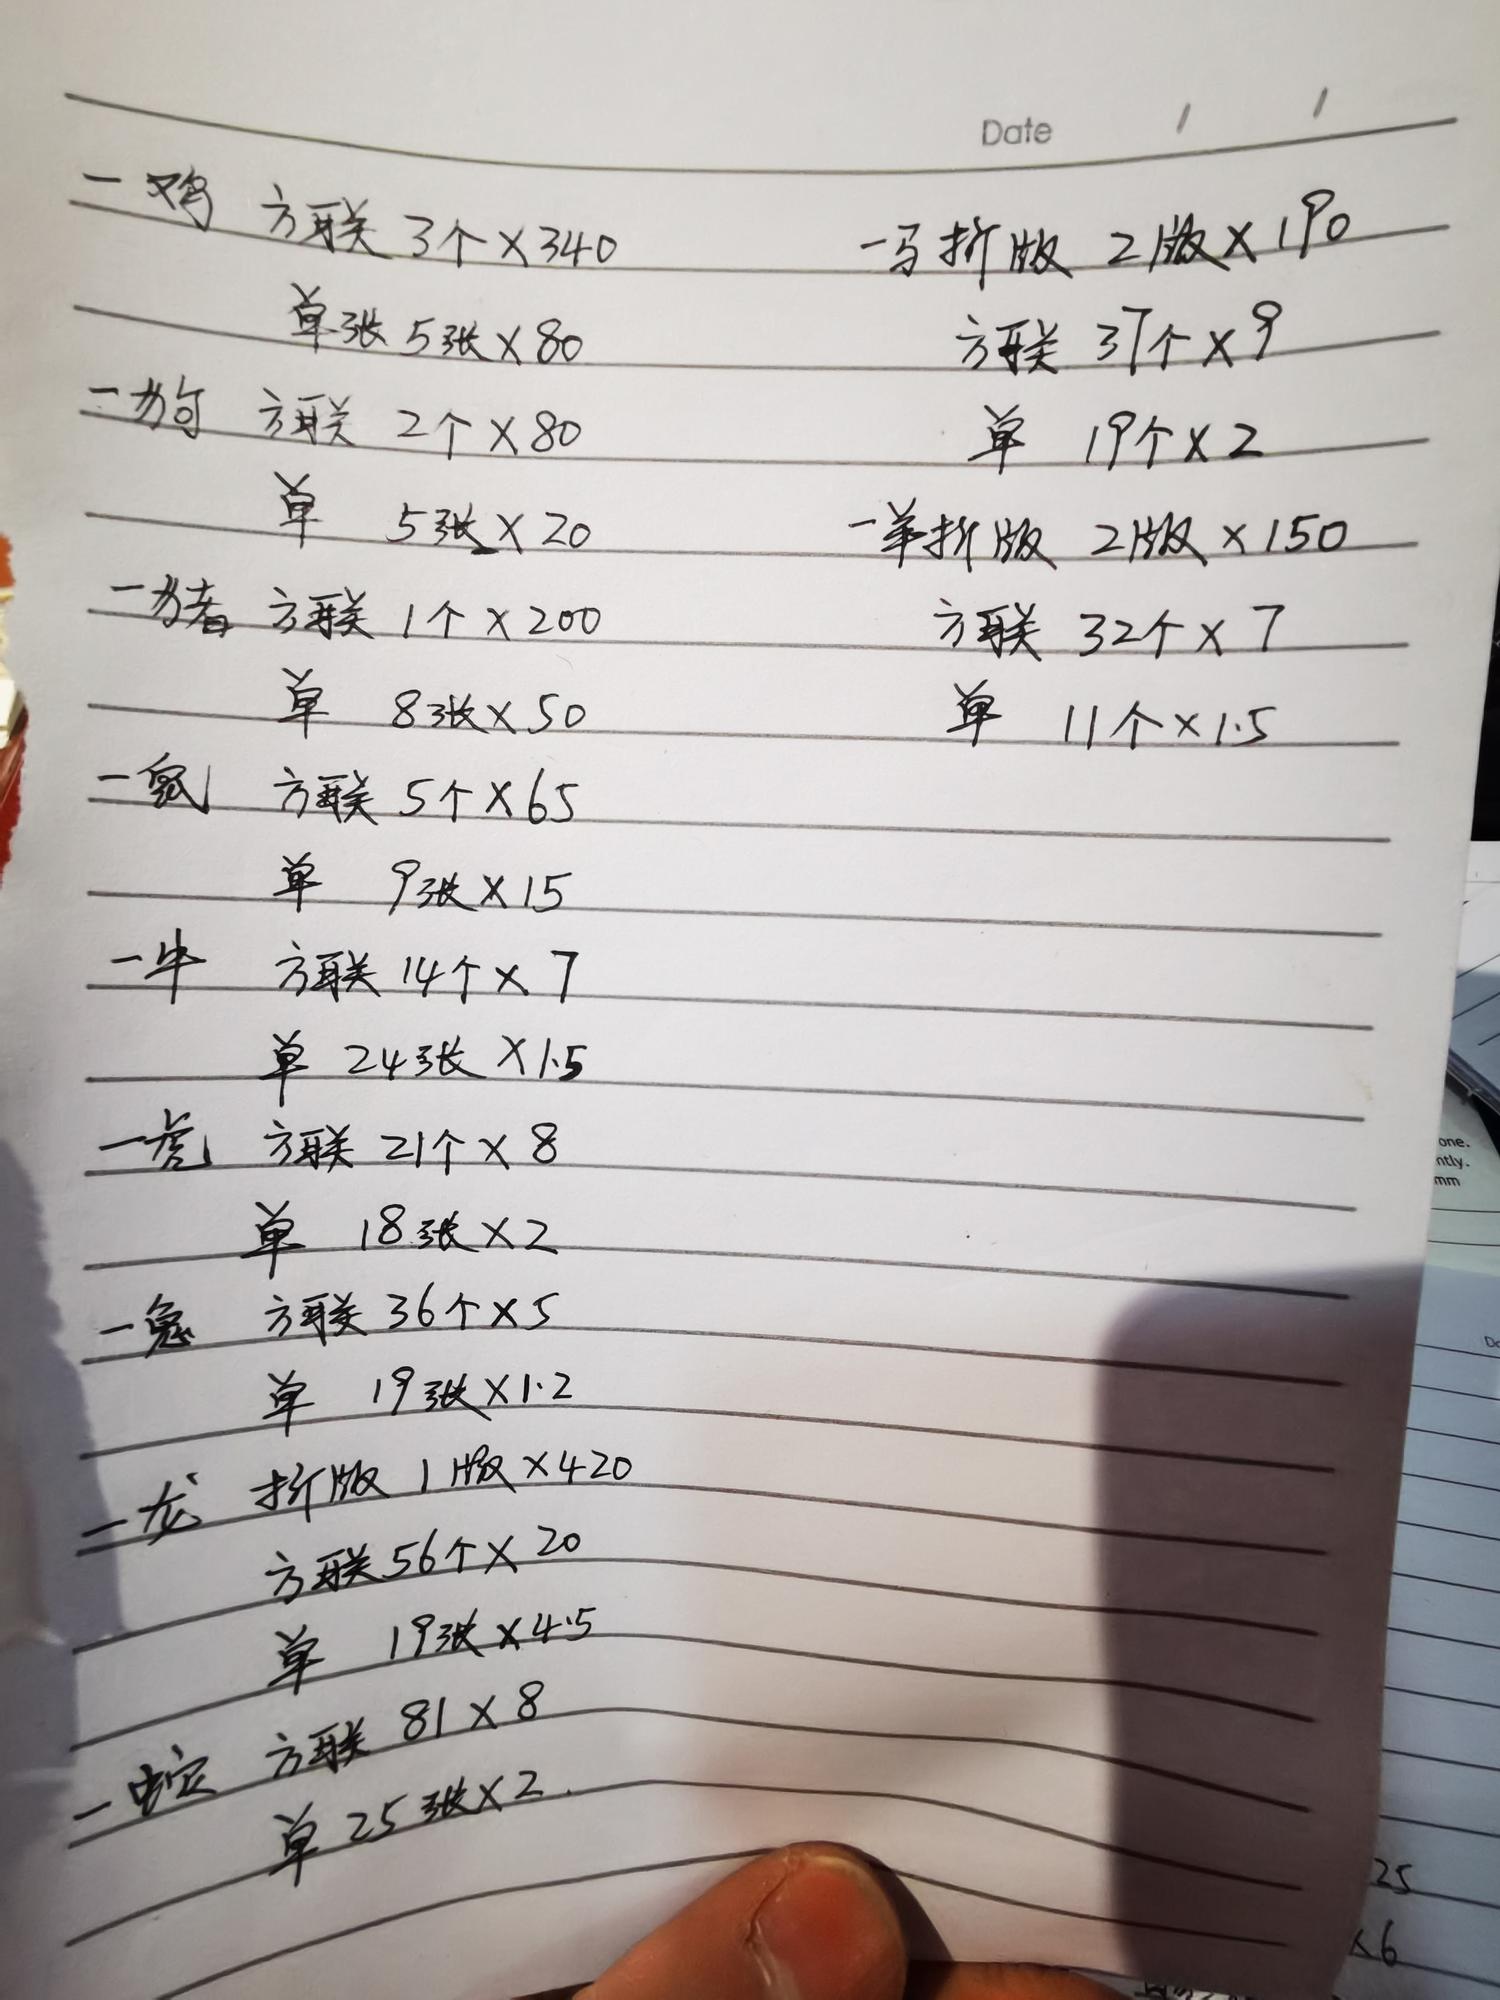 Date / /
一鸡 方联 3个×340
单张 5张×80
一狗 方联 2个×80
单 5张×20
一猪 方联 1个×200
单 8张×50
一鼠 方联 5个×65
单 9张×15
一牛 方联 14个×7
单 24张×1.5
一虎 方联 21个×8
单 18张×2
一兔 方联 36个×5
单 19张×1.2
一龙 折版 1版×420
方联 56个×20
单 19张×4.5
一蛇 方联 81×8
单 25张×2
一马折版 2版×190
方联 37个×9
单 19个×2
一羊折版 2版×150
方联 32个×7
单 11个×1.5
one.
ntly.
mm
25
×6